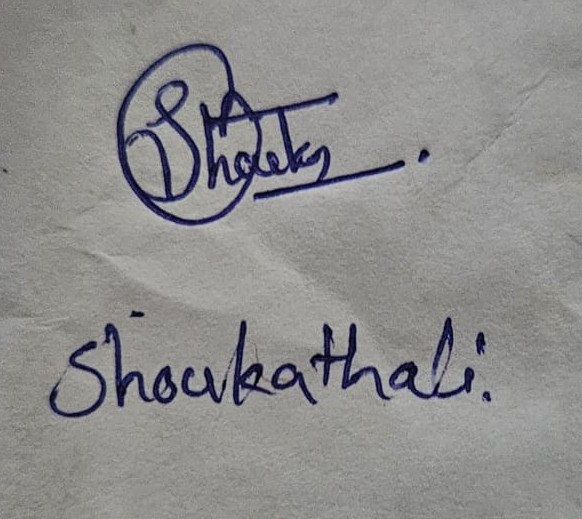 Shouk
Shoukathali.